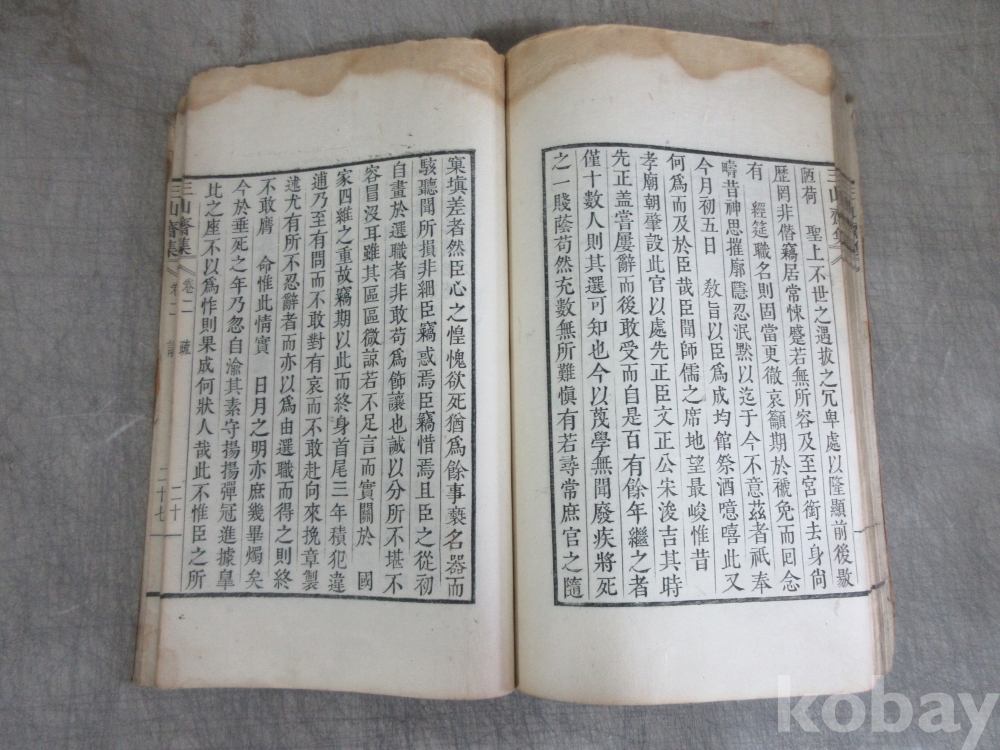 陋荷　聖上不世之遇拔之冗卑處以隆顯前後敭
歷罔非僭竊居常悚蹙若無所容及至宮銜去身尙
有　經筵職名則固當更徹哀籲期於褫免而回念
疇昔神思摧廓隱忍泯默以迄于今不意茲者祇奉
今月初五日　敎旨以臣爲成均館祭酒噫嘻此又
何爲而及於臣哉臣聞師儒之席地望最峻惟昔
孝廟朝肇設此官以處先正臣文正公宋浚吉其時
先正盖嘗屢辭而後敢受而自是百有餘年繼之者
僅十數人則其選可知也今以蔑學無聞廢疾將死
之一賤蔭苟然充數無所難愼有若尋常庶官之隨
窠塡差者然臣心之惶愧欲死猶爲餘事褻名器而
駭聽聞所損非細臣竊惑焉臣竊惜焉且臣之從初
自畫於選職者非敢苟爲飾讓也誠以分所不堪不
容冒沒耳雖其區區微諒若不足言而實關於　國
家四維之重故竊期以此而終身首尾三年積犯違
逋乃至有問而不敢對有哀而不敢赴向來挽章製
述尤有所不忍辭者而亦以爲由選職而得之則終
不敢膺　命惟此情實　日月之明亦庶幾畢燭矣
今於垂死之年乃忽自渝其素守揚揚彈冠進據皐
比之座不以爲怍則果成何狀人哉此不惟臣之所
三山齋集　卷二　疏　二十
二十七
kobay